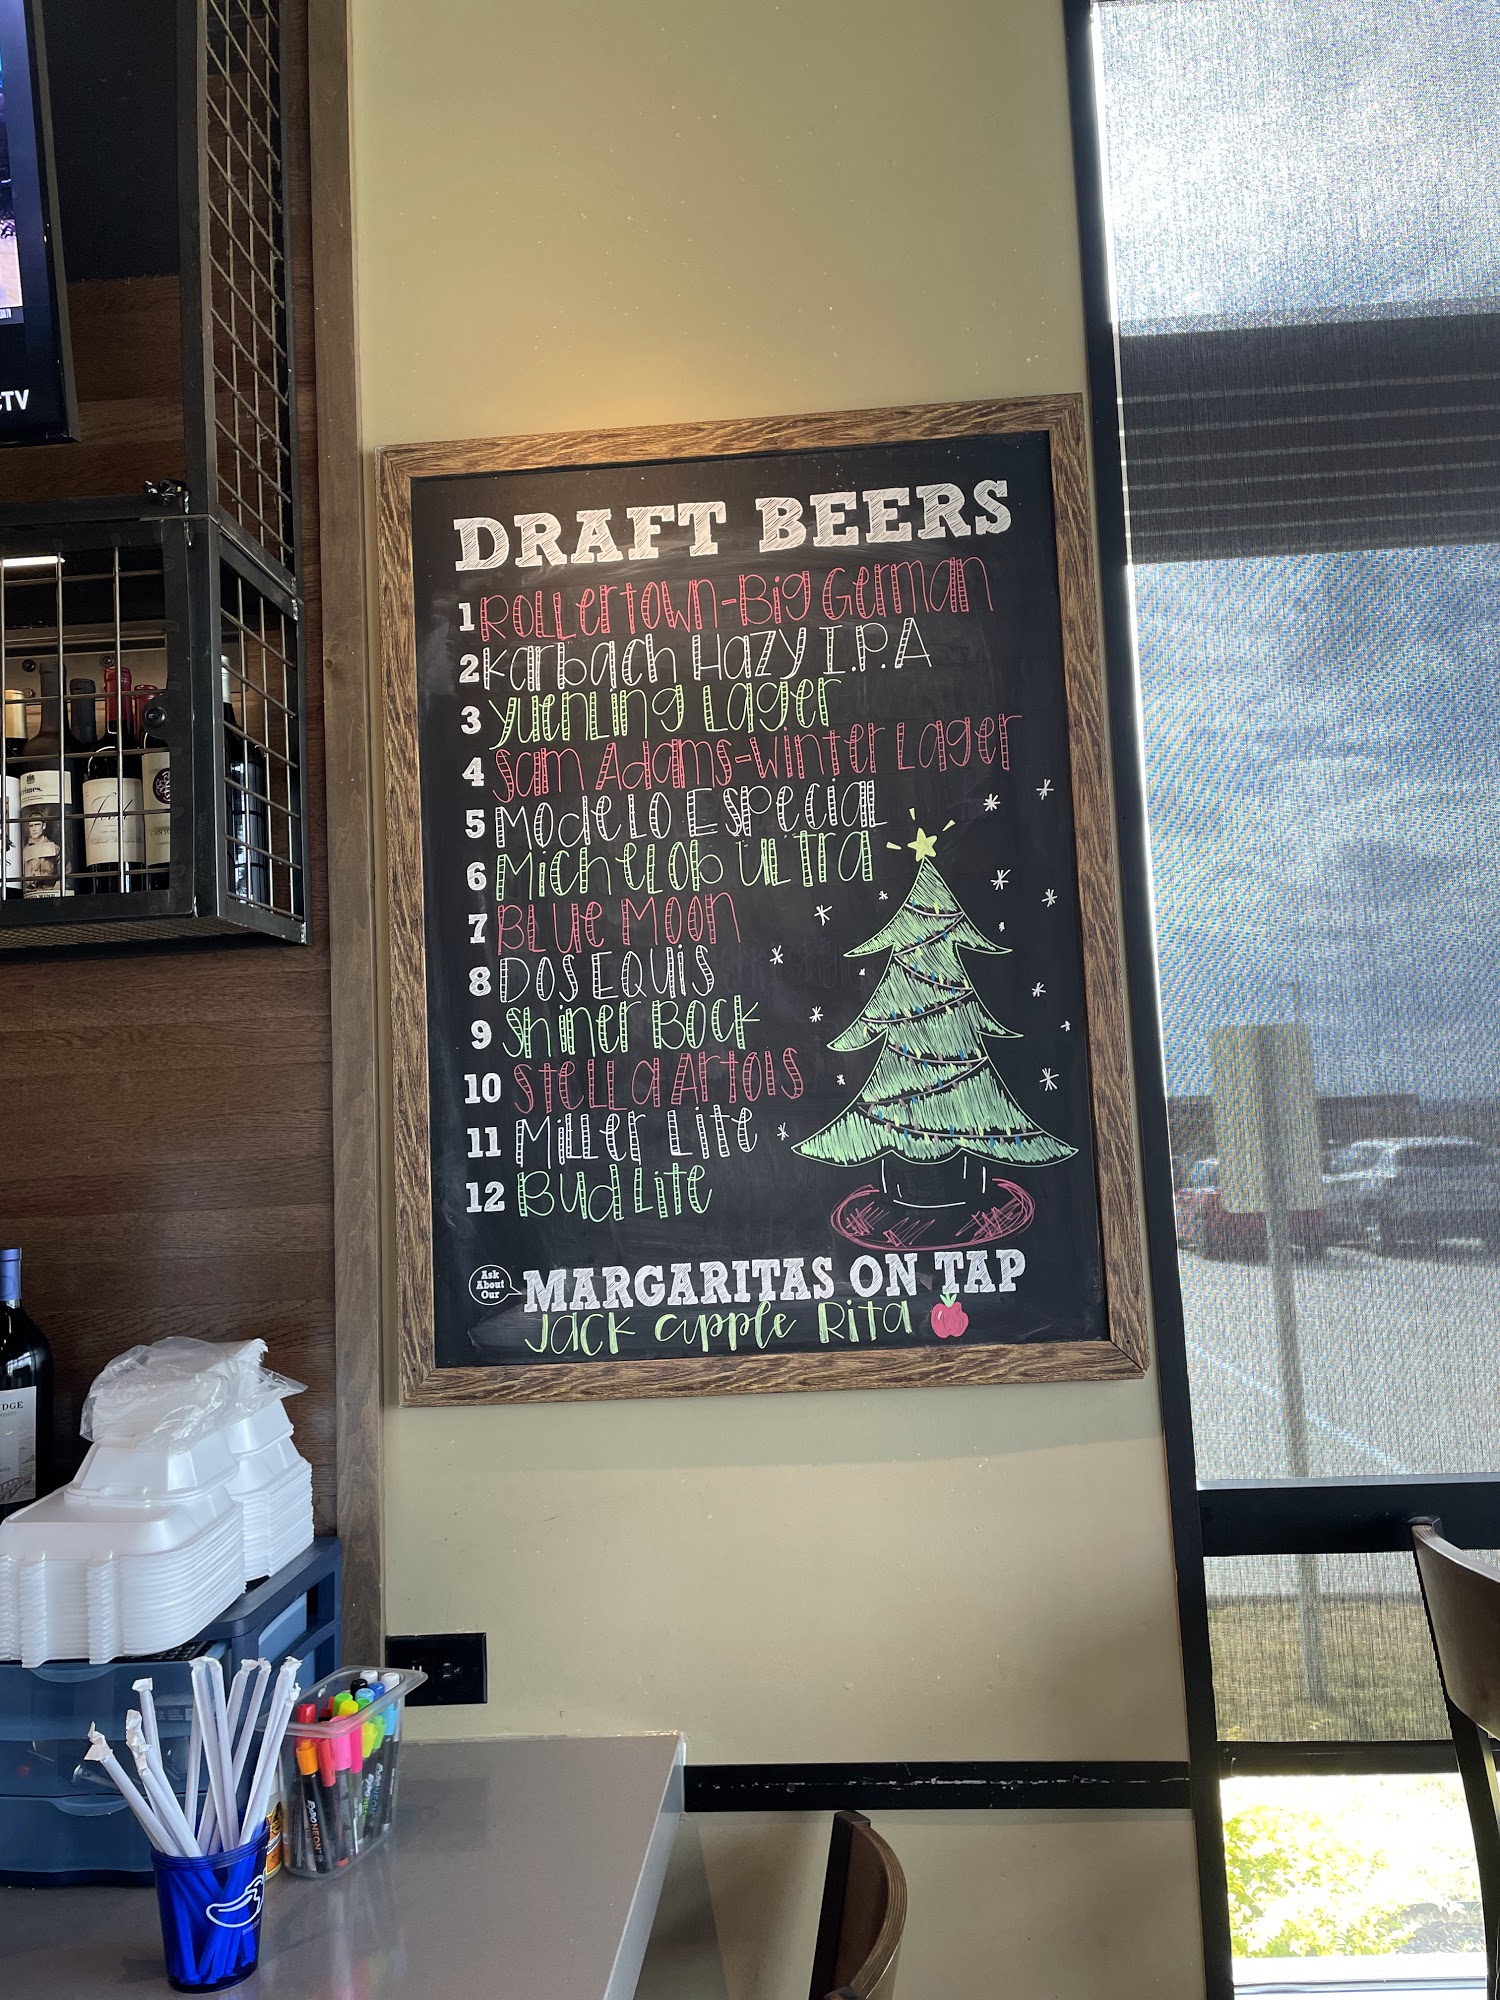 CTV
DRAFT BEERS
1 Rollertown-Big German
2 Karbach Hazy I.P.A
3 Yuenling Lager
4 Sam Adams-Winter Lager
5 Modelo Especial
6 Michelob Ultra
7 Blue Moon
8 Dos Equis
9 Shiner Bock
10 Stella Artois
11 Miller Lite
12 Bud Lite
Ask
About
Our
MARGARITAS ON TAP
Jack Apple Rita
DGE
EXPO NEON